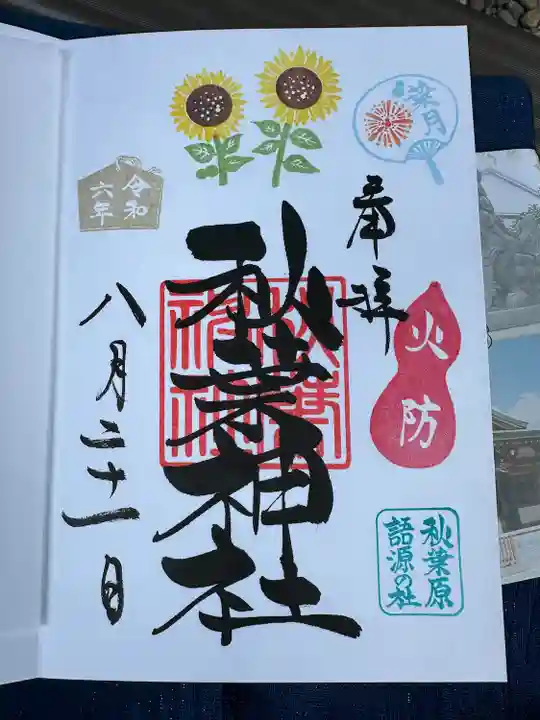 葉月
奉拝
火防
秋葉原
語源の社
秋葉神社
秋葉
神社
令和
六年
八月二十一日